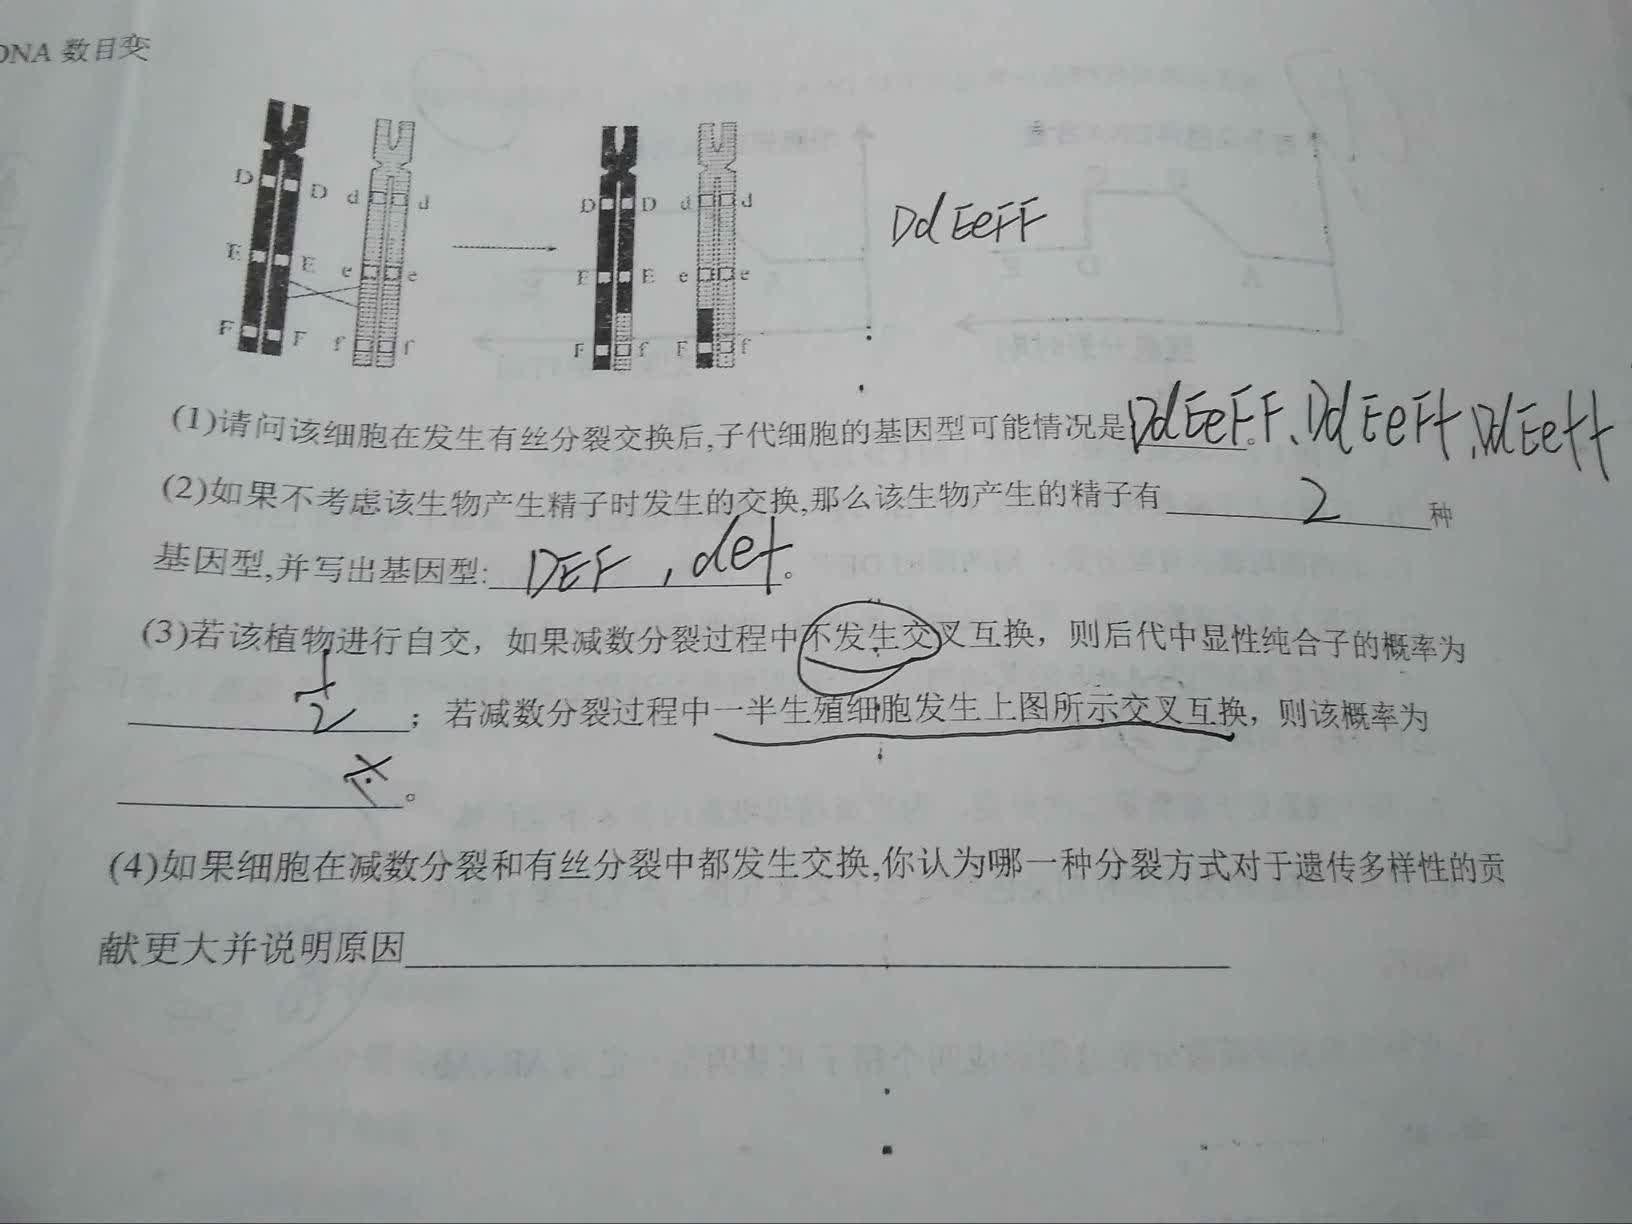 DNA 数目变
D D d d D D d d
E E e e E E e e
F F f f F f F f
DdEeFF
(1)请问该细胞在发生有丝分裂交换后,子代细胞的基因型可能情况是DdEeFF、DdEeFf、DdEeff
(2)如果不考虑该生物产生精子时发生的交换,那么该生物产生的精子有 2 种
基因型,并写出基因型: DEF , def 。
(3)若该植物进行自交，如果减数分裂过程中不发生交叉互换，则后代中显性纯合子的概率为
1/2 ；若减数分裂过程中一半生殖细胞发生上图所示交叉互换，则该概率为
。
(4)如果细胞在减数分裂和有丝分裂中都发生交换,你认为哪一种分裂方式对于遗传多样性的贡
献更大并说明原因